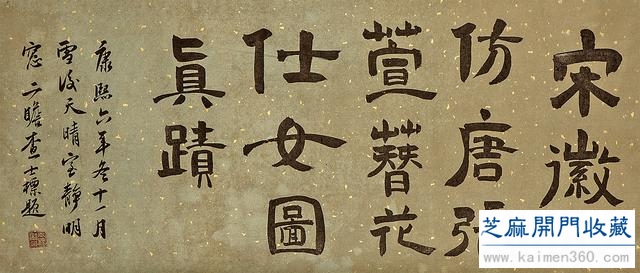 宋徽
仿唐張
萱簪花
仕女圖
眞蹟
康熙六年冬十一月
雪後天晴室靜明
窓二瞻查士標題
芝麻開門收藏
www.kaimen360.com